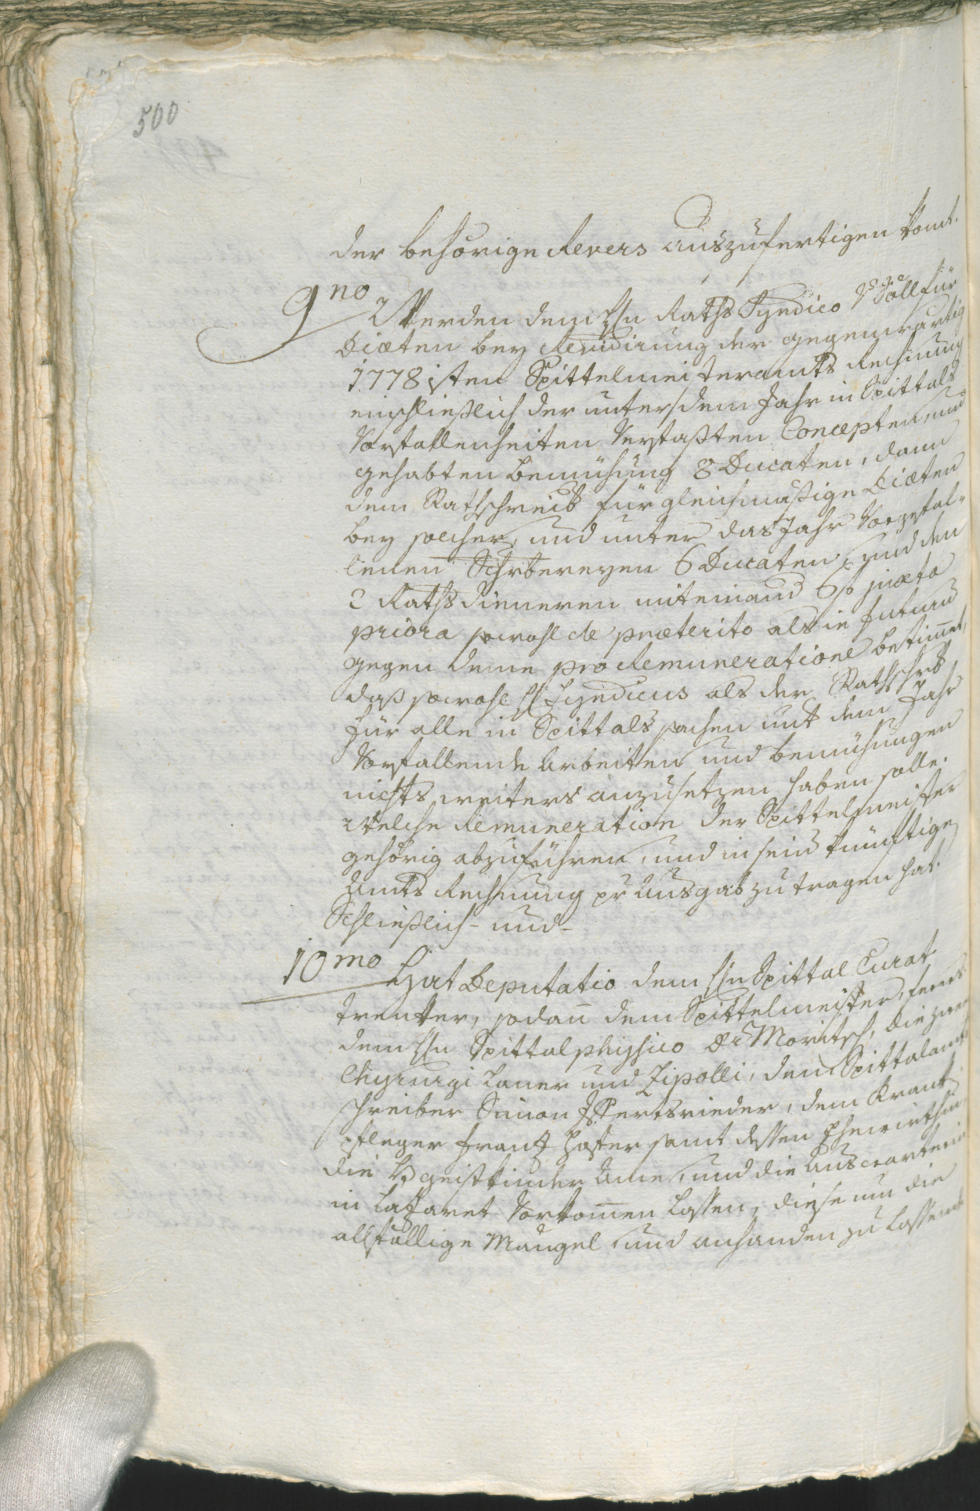 500
der behörige Revers auszufertigen komt.
9no Werden dem Hn Raths Syndico für
Diæten bey Revidirung der gegenwärtig
1778isten Spittelmeisteramts Rechnung
einschließlich der unter dem Jahr in Spittals
Vorfallenheiten Verfaßten Concepten, und
gehabten bemühung 8 Ducaten, dann
dem Rathschreib für gleichmäßige Diæten
bey solcher, und unter das Jahr Vorgefal-
lenen Schrbereyen 6 Ducaten, und den
2 Raths Dieneren miteinand 6 f juxta
priora sowohl de præterito als in futurum
gegen deme pro Remuneratione bestimmet,
daß sowohl H Syndicus als der Rathschrb
für alle in Spittals sachen unt dem Jahr
Vorfallende Arbeiten und bemühungen
nichts weiters anzusetzen haben solle.
Welche Remuneration der Spittelmeister
gehörig abzuführen, und in seine künftige
Amts Rechnung pr Ausgab zu tragen hat.
Schließlich- und-
10mo Hat Deputatio dem Hn Spittal Curat
Trentter, sodann dem Spittelmeister, ferers
dem Hn Spittalphysico Dr Moritsch, die zween
Chyrurgi Laner und Zipolli, dem Spittalamt
schreiber Simon Pertsrieder, dem Krank
pfleger Frantz Hofer samt dessen Ehewirthin
die kinder Ame, und die Auswarterin
in Lazaret Vorkommen Lassen, diese um die
allfällige Mängel, und anhanden zu Lassende